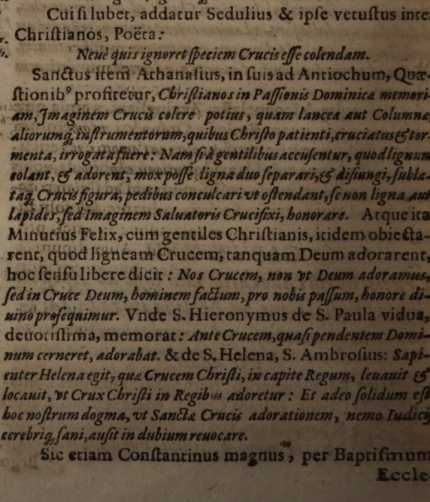 Cui si lubet, addatur Sedulius & ipse vetustus inte
Christianos, Poëta:
Nevè quis ignoret speciem Crucis esse colendam.
Sanctus item Athanasius, in suis ad Antiochum, Quæ-
stionibꝰ profitetur, Christianos in Passionis Dominicæ memori-
am, Imaginem Crucis colere potius, quam lancea aut Columnæ
aliorumq; instrumentorum, quibus Christo patienti, cruciatus & tor-
menta, irrogata fuere: Nam si à gentilibus accusentur, quod lignum
colant, & adorent, mox posse ligna duo separari, & disiungi, subla-
taq; Crucis figura, pedibus conculcari vt ostendant, se non ligna aut
lapides, sed Imaginem Saluatoris Crucifixi, honorare. Atque ita
Minutius Felix, cum gentiles Christianis, itidem obiecta-
rent, quod ligneam Crucem, tanquam Deum adorarent,
hoc sensu libere dicit: Nos Crucem, non vt Deum adoramus,
sed in Cruce Deum, hominem factum, pro nobis passum, honore di-
uino prosequimur. Vnde S. Hieronymus de S. Paula vidua,
deuotissima, memorat: Ante Crucem, quasi pendentem Domi-
num cerneret, adorabat. & de S. Helena, S. Ambrosius: Sapi-
enter Helena egit, quæ Crucem Christi, in capite Regum, leuauit &
locauit, vt Crux Christi in Regibus adoretur: Et adeo solidum est
hoc nostrum dogma, vt Sanctæ Crucis adorationem, nemo Iudicij
cerebriq; sani, ausit in dubium reuocare.
Sic etiam Constantinus magnus, per Baptismum
Eccle